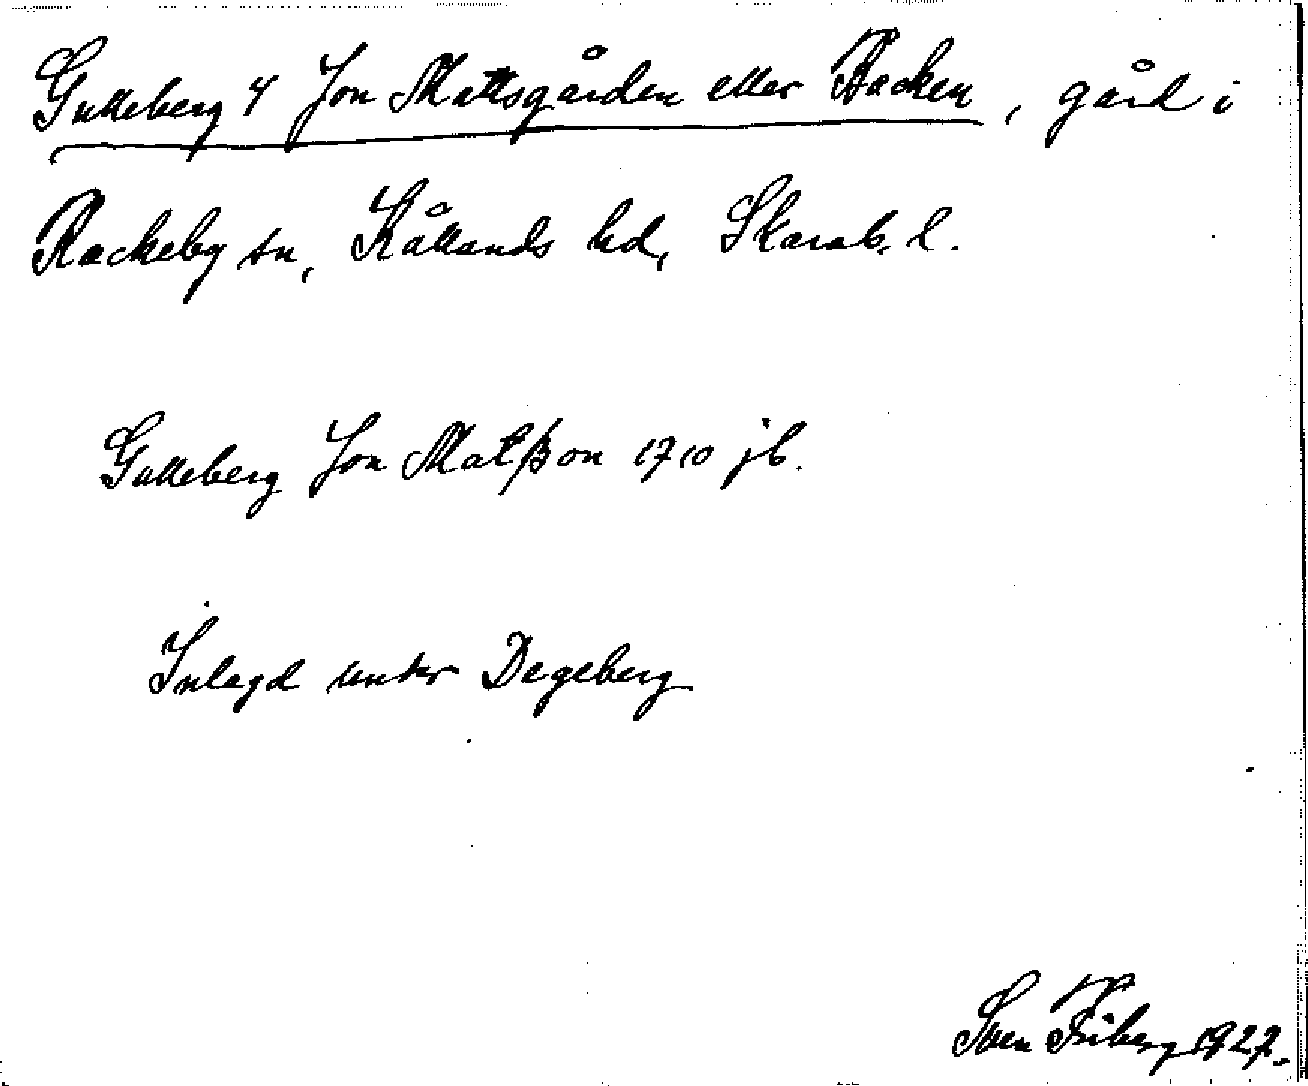 Gulleberg 4 Jon Mattsgården eller Backen, gård i
Rackeby sn, Kållands hd, Skarab. l.
Gulleberg Jon Matßon 1710 jb.
Inlagd under Degeberg
Sven Friberg 1927.